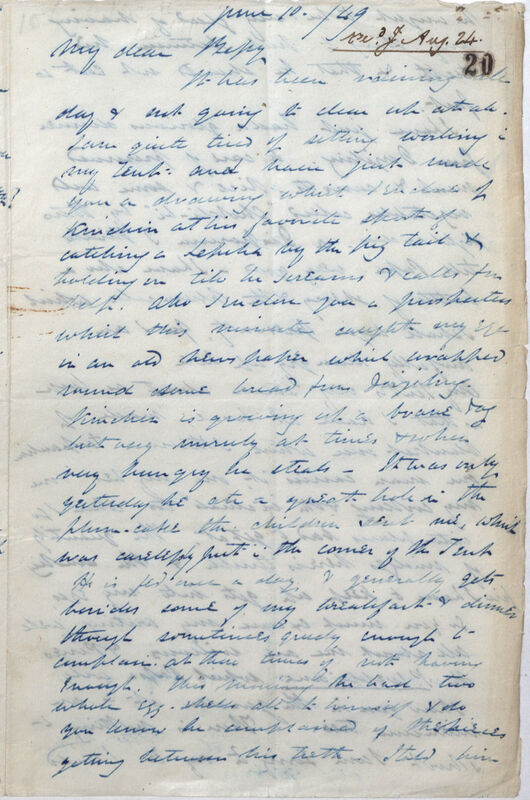 June 10. /49
recd. J Aug. 24.
20
My dear Bessy
It has been raining all
day & not going to clear up at all.
I am quite tired of sitting working in
my tent and have just made
you a drawing which I enclose of
Kinchin at his favorite sport of
catching a Lepcha by the pig tail &
holding on till he screams & calls for
help. Also I enclose you a prospectus
which this minute caught my eye
in an old newspaper which wrapped
round some bread from Dorjiling.
Kinchin is growing up a brave dog
but very unruly at times & when
very hungry he steals — It was only
yesterday he ate a great hole in the
plum-cake the children sent me, which
was carelessly put in the corner of the Tent
He is fed once a day, & generally gets
besides some of my breakfast & dinner
though sometimes greedy enough to
complain at these times of not having
enough. This morning he had two
whole Egg-shells all to himself & do
you know he complained of the pieces
getting between his teeth I told him